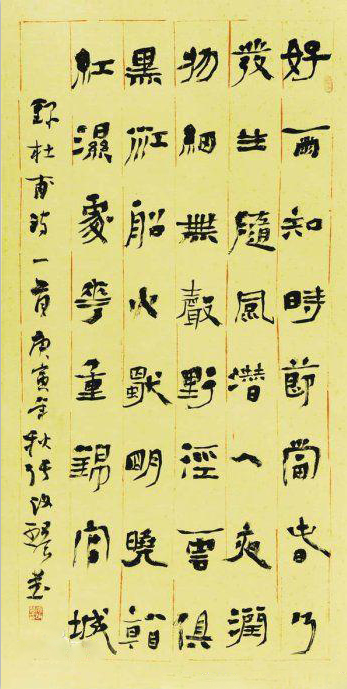 好雨知時節當春乃
發生隨風潛入夜潤
物細無聲野徑雲俱
黑江船火獨明曉看
紅濕處華重錦官城
錄杜甫詩一首庚寅年秋張改琴書